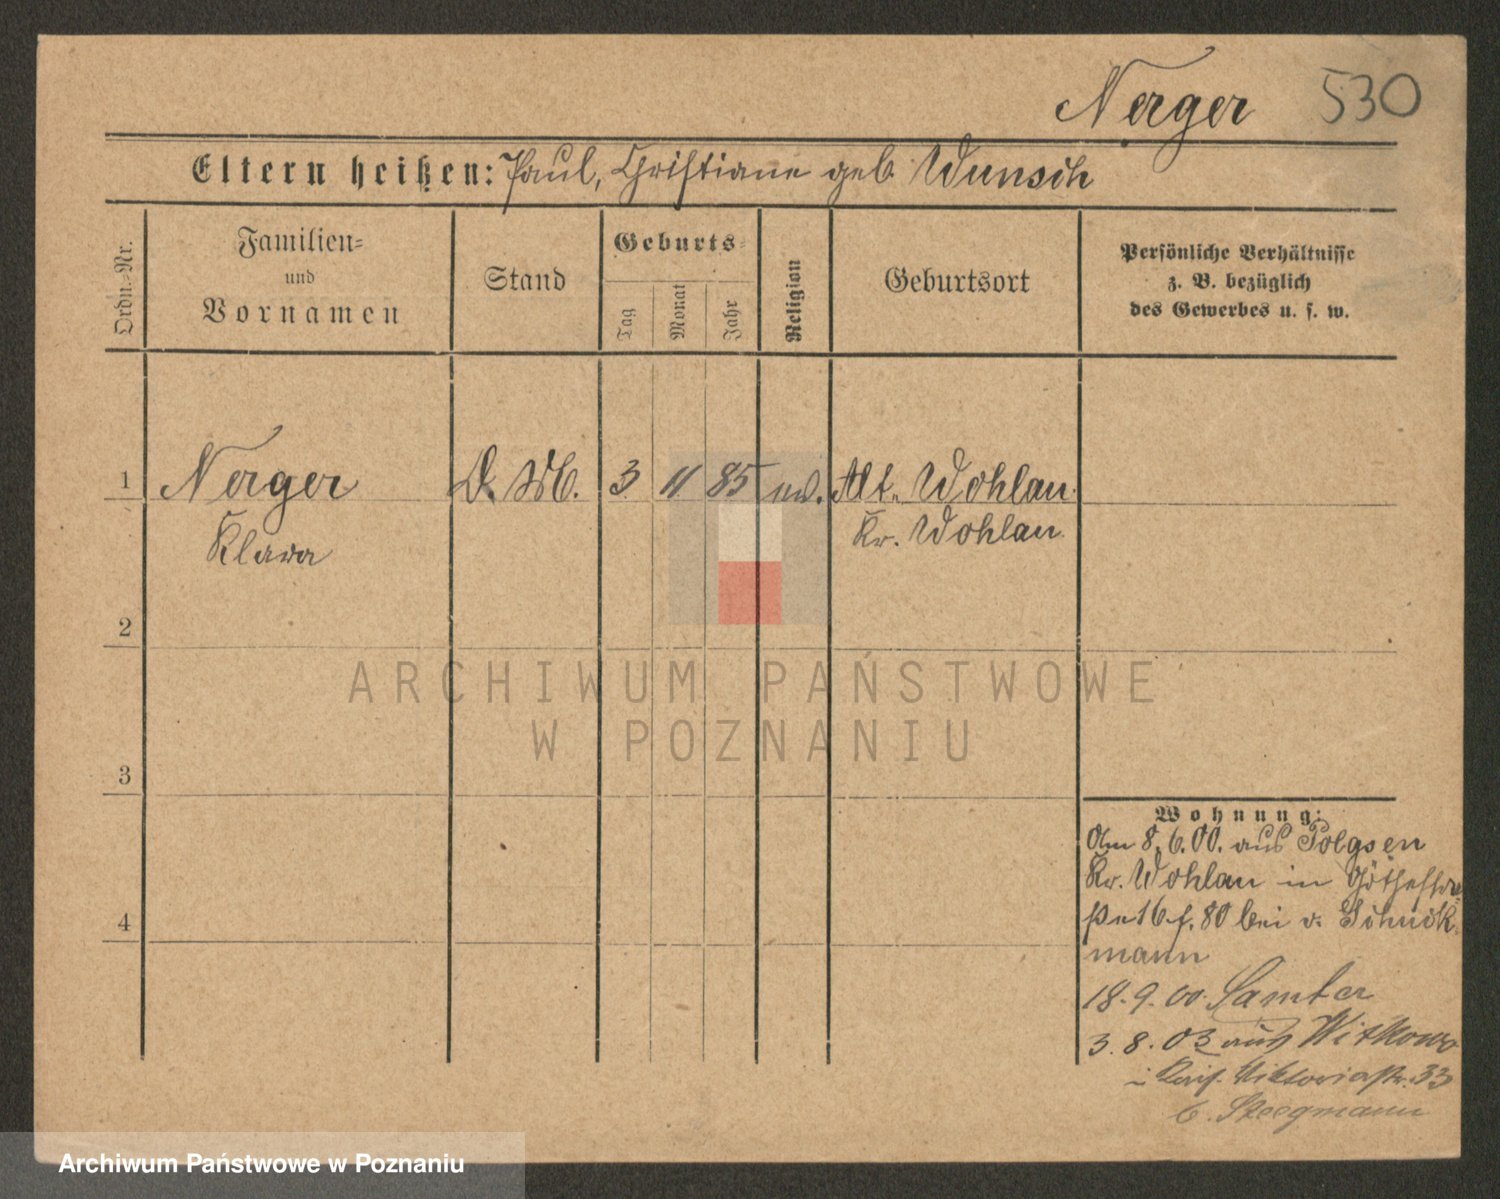 Nerger 530
Eltern heißen: Paul, Christiane geb. Wunsch
Ordn.-Nr.
Familien-
und
Vornamen
Stand
Geburts-
Tag
Monat
Jahr
Religion
Geburtsort
Persönliche Verhältnisse
z. B. bezüglich
des Gewerbes u. s. w.
1 Nerger D. M. 3 11 85 ev. Alt. Wohlau
Klara Kr. Wohlau
2
ARCHIWUM PAŃSTWOWE
W POZNANIU
3
4
Wohnung:
Am 8.6.00. aus Polgsen
Kr. Wohlau in Göthestra-
ße 16 f. 80 bei v. Schuck-
mann
18.9.00 Samter
3.8.03 aus Witkowo
Viktoriastr. 33
b. Steegmann
Archiwum Państwowe w Poznaniu